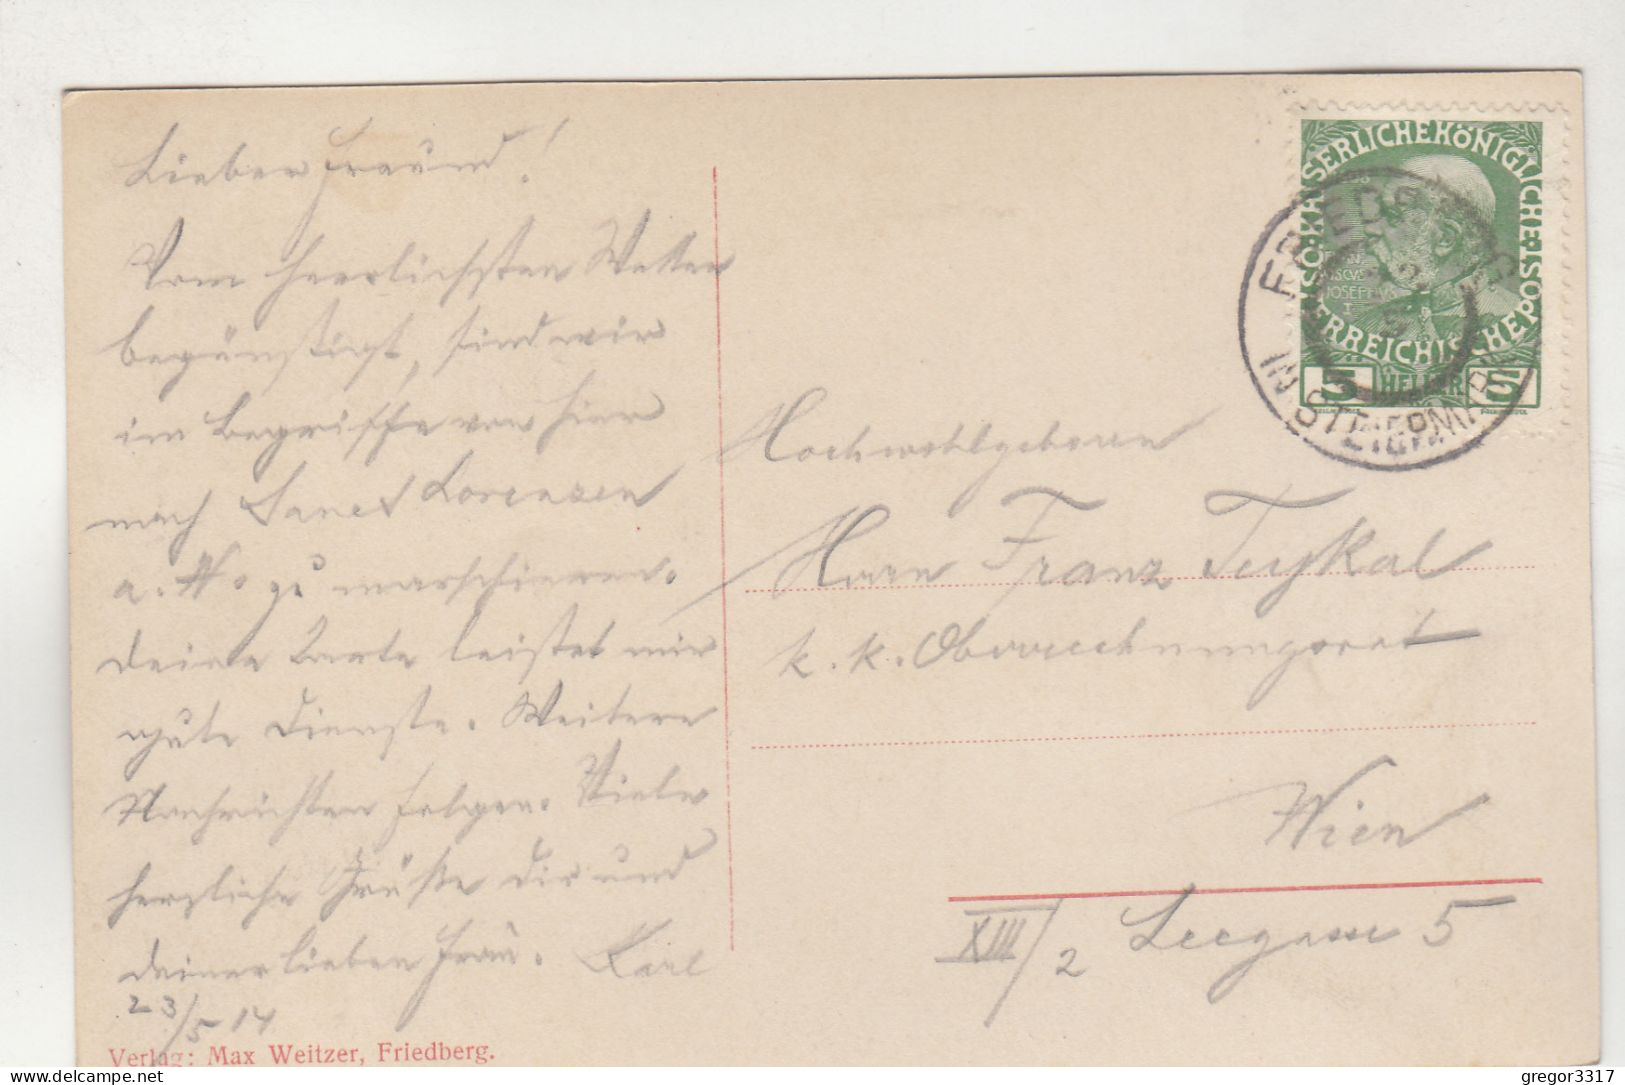 Lieber Freund!
Vom herrlichsten Wetter
begünstigt, sind wir
im Begriffe von hier
nach Sanct Lorenzen
a. W. zu marschieren.
Deine Karte leistet mir
gute Dienste. Weitere
Nachrichten folgen. Viele
herzliche Grüße Dir und
Deiner lieben Frau. Karl
23/5 14
Verlag: Max Weitzer, Friedberg.
KAISERLICHE KÖNIGLICHE
ÖSTERREICHISCHE POST
JOSEPHVS
I
5 HELLER 5
FRIEDBERG
IN STEIERMARK
Hochwohlgeboren
Herrn Franz
k. k. Oberrechnungsrat
Wien
XIII/2 Leegasse 5
gregor3317